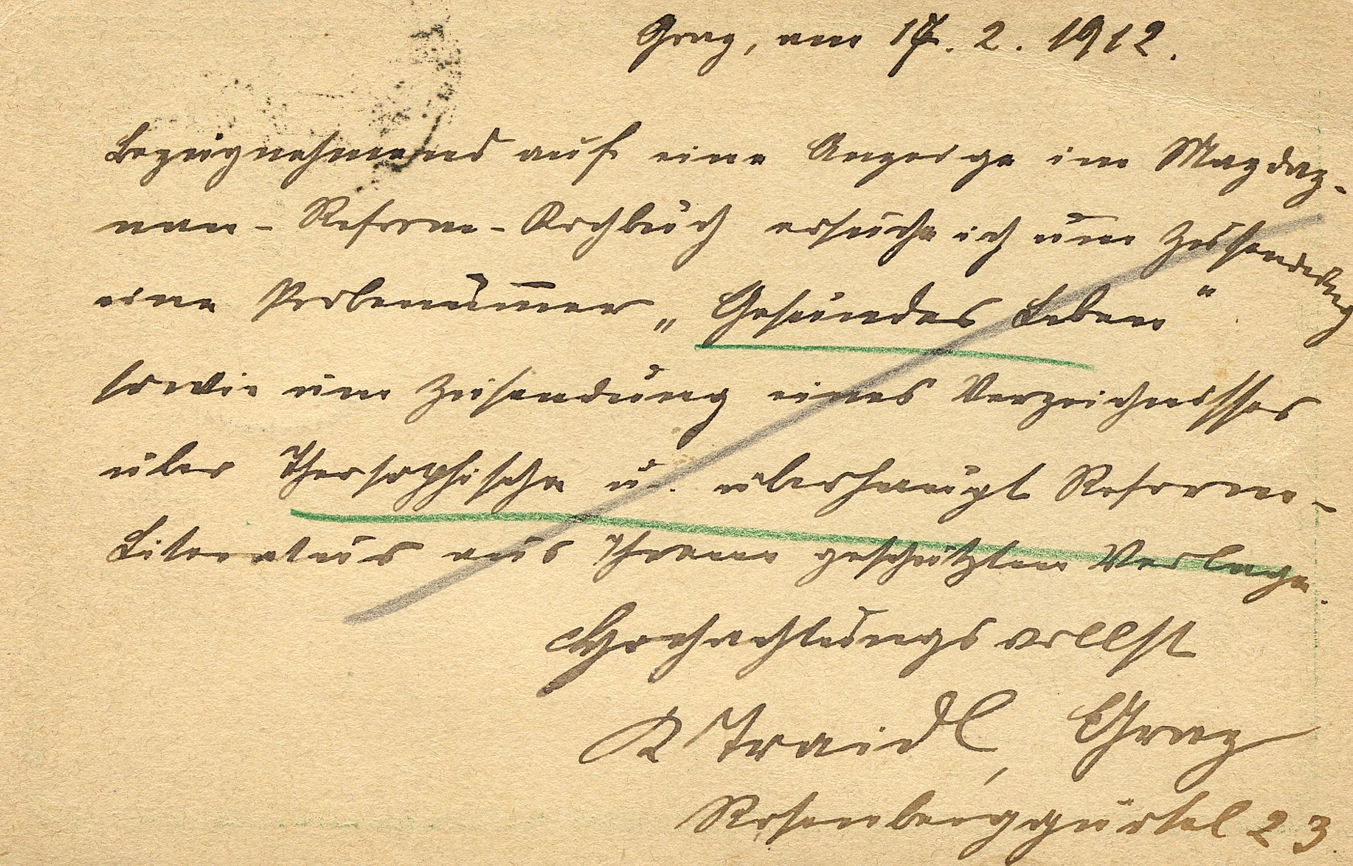 Graz, am 17. 2. 1912.
Bezugnehmend auf eine Anzeige im Mazdaz-
nan-Reform-Kochbuch ersuche ich um Zusendung
eine Probenummer „Gesundes Leben"
sowie um Zusendung eines Verzeichnisses
über Theosophische u. überhaupt Reform-
Literatur aus Ihrem geschätzten Verlage.
Hochachtungsvollst
K Traidl, Graz
Rosenberggürtel 23